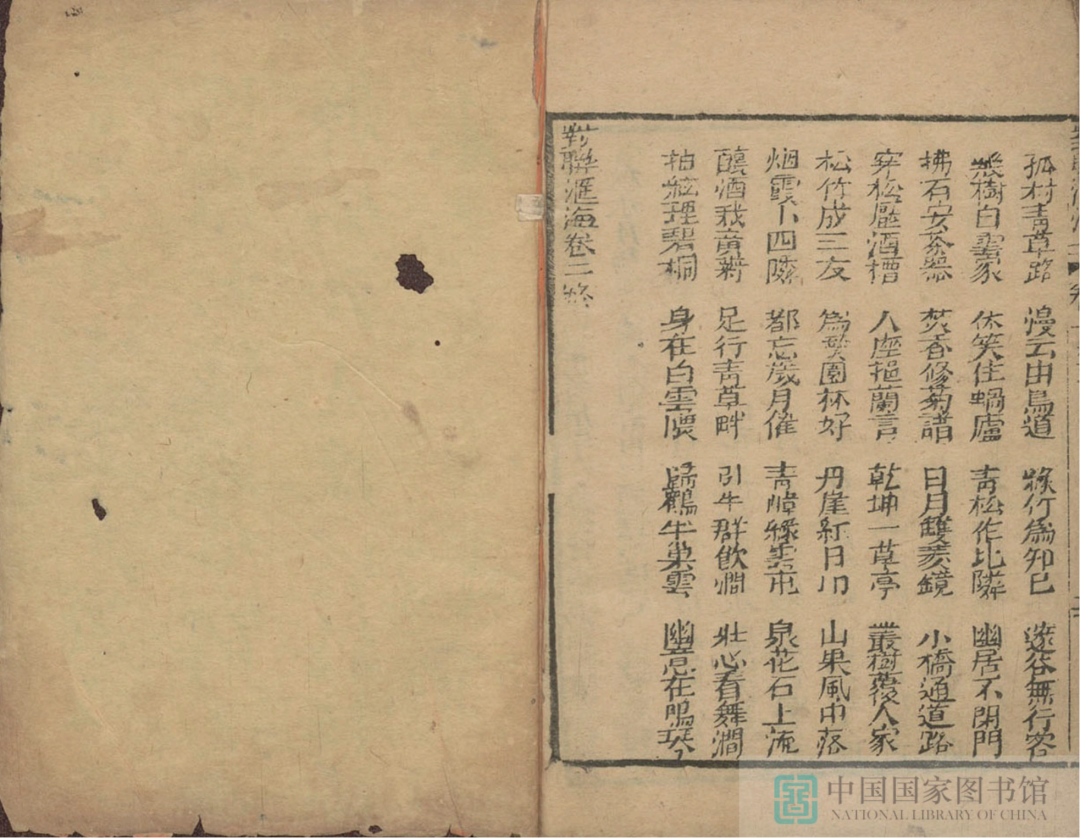 孤村青草路 漫云由鳥道 綠竹為知已 邃谷無行客
樹白雲家 休笑住蝸廬 青松作比隣 幽居不閉門
拂石安茶器 焚香修菊譜 日月雙懸鏡 小橋通道路
穿松壓酒槽 人座挹蘭言 乾坤一草亭 叢樹覆人家
松竹成三友 為園林好 丹崖紅日 山果風中落
烟霞卜四隣 都忘歲月催 青幛綠雲屯 泉花石上流
釀酒栽黃菊 足行青草畔 引牛群飲澗 壯心看舞
抽絃理碧桐 身在白雲隈 歸鶴半巢雲 幽思在鳴琴
對聯滙海卷二終
中国国家图书馆
NATIONAL LIBRARY OF CHINA